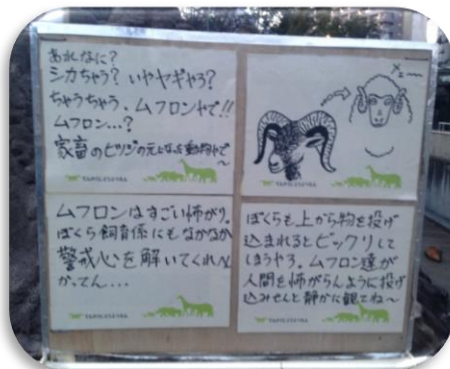 あれなに?
シカちゃう? いやヤギやろ?
ちゃうちゃう、ムフロンやで!!
ムフロン…?
家畜のヒツジの元となった動物やで
~
メェ~
ムフロンはすごい怖がり。
ぼくら飼育係にもなかなか
警戒心を解いてくれへん
かってん…
ぼくらも上から物を投げ
込まれるとビックリして
しまうやろ。ムフロン達が
人間を怖がらんように投げ
込みせんと静かに観てね~